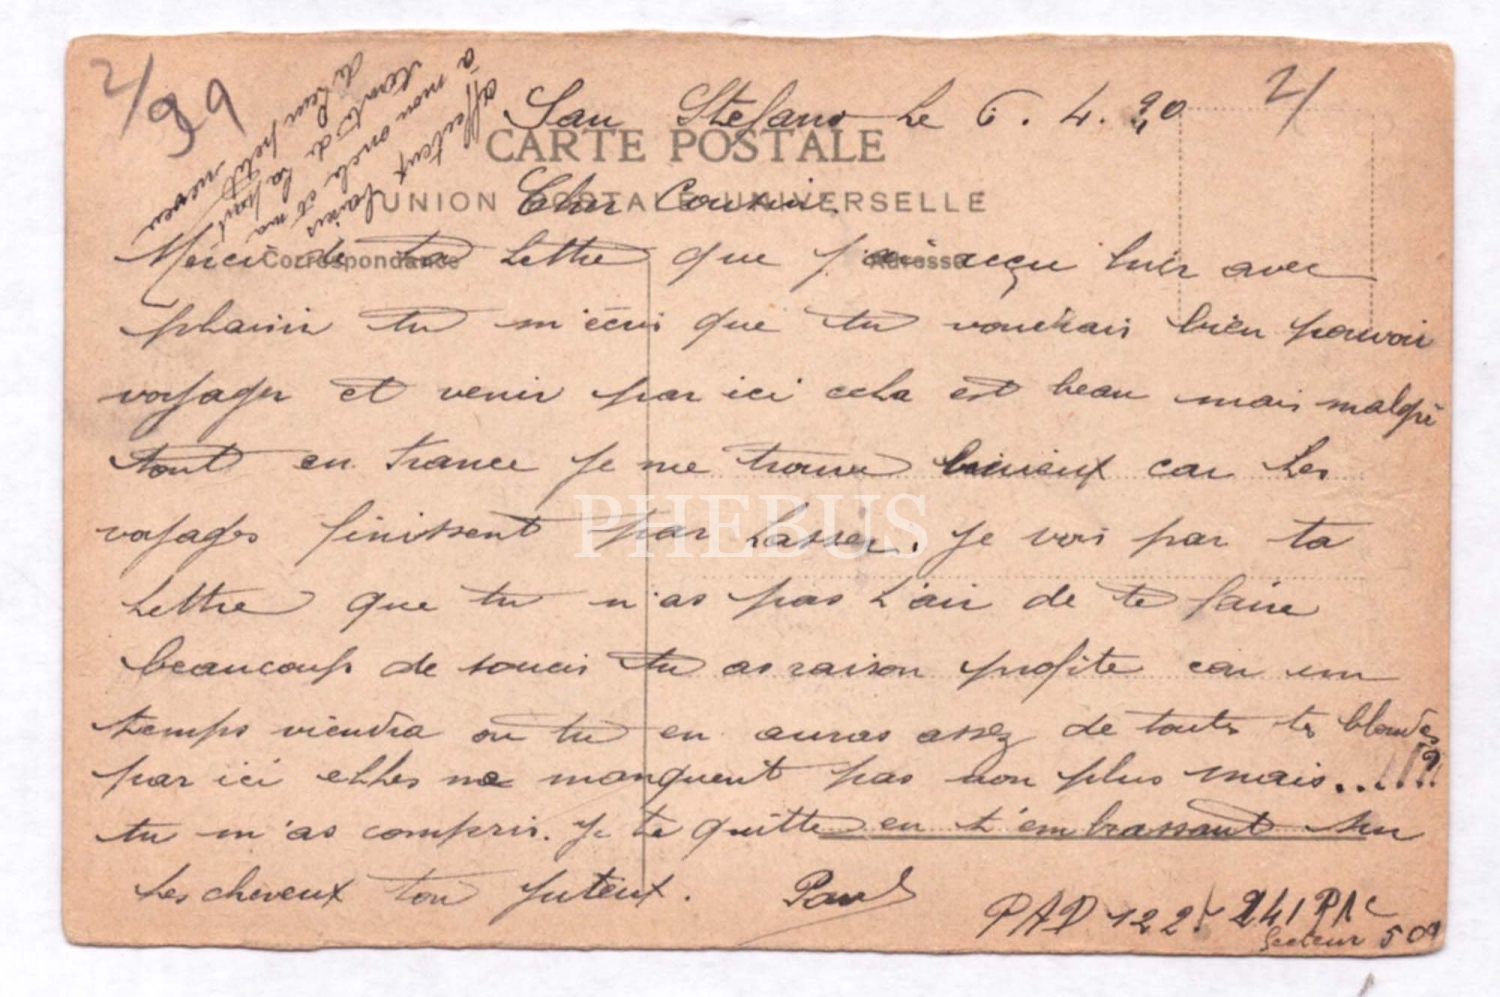 2/
39
2/
San Stefano Le 6. 4. 20
CARTE POSTALE
UNION POSTALE UNIVERSELLE
Cher Cousin.
Correspondance
Adresse
Merci de ta Lettre que j'ai reçu hier avec
plaisir tu m'écris que tu voudrais bien pouvoir
voyager et venir par ici cela est beau mais malgré
tout en France je me trouve mieux car Les
voyages finissent par Lasser. je vois par ta
Lettre que tu n'as pas L'air de te faire
beaucoup de soucis tu as raison profite car un
temps viendra ou tu en auras assez de toutes tes blondes
par ici elles ne manquent pas non plus mais...!!?!
tu m'as compris. je te quitte en t'embrassant sur
Les cheveux ton juteux. Paul
PAD 122! 241 PAC
Secteur 509
affectueux baisers
à mon oncle et ma
tante de la part
de leur petit neveu
PHEBUS